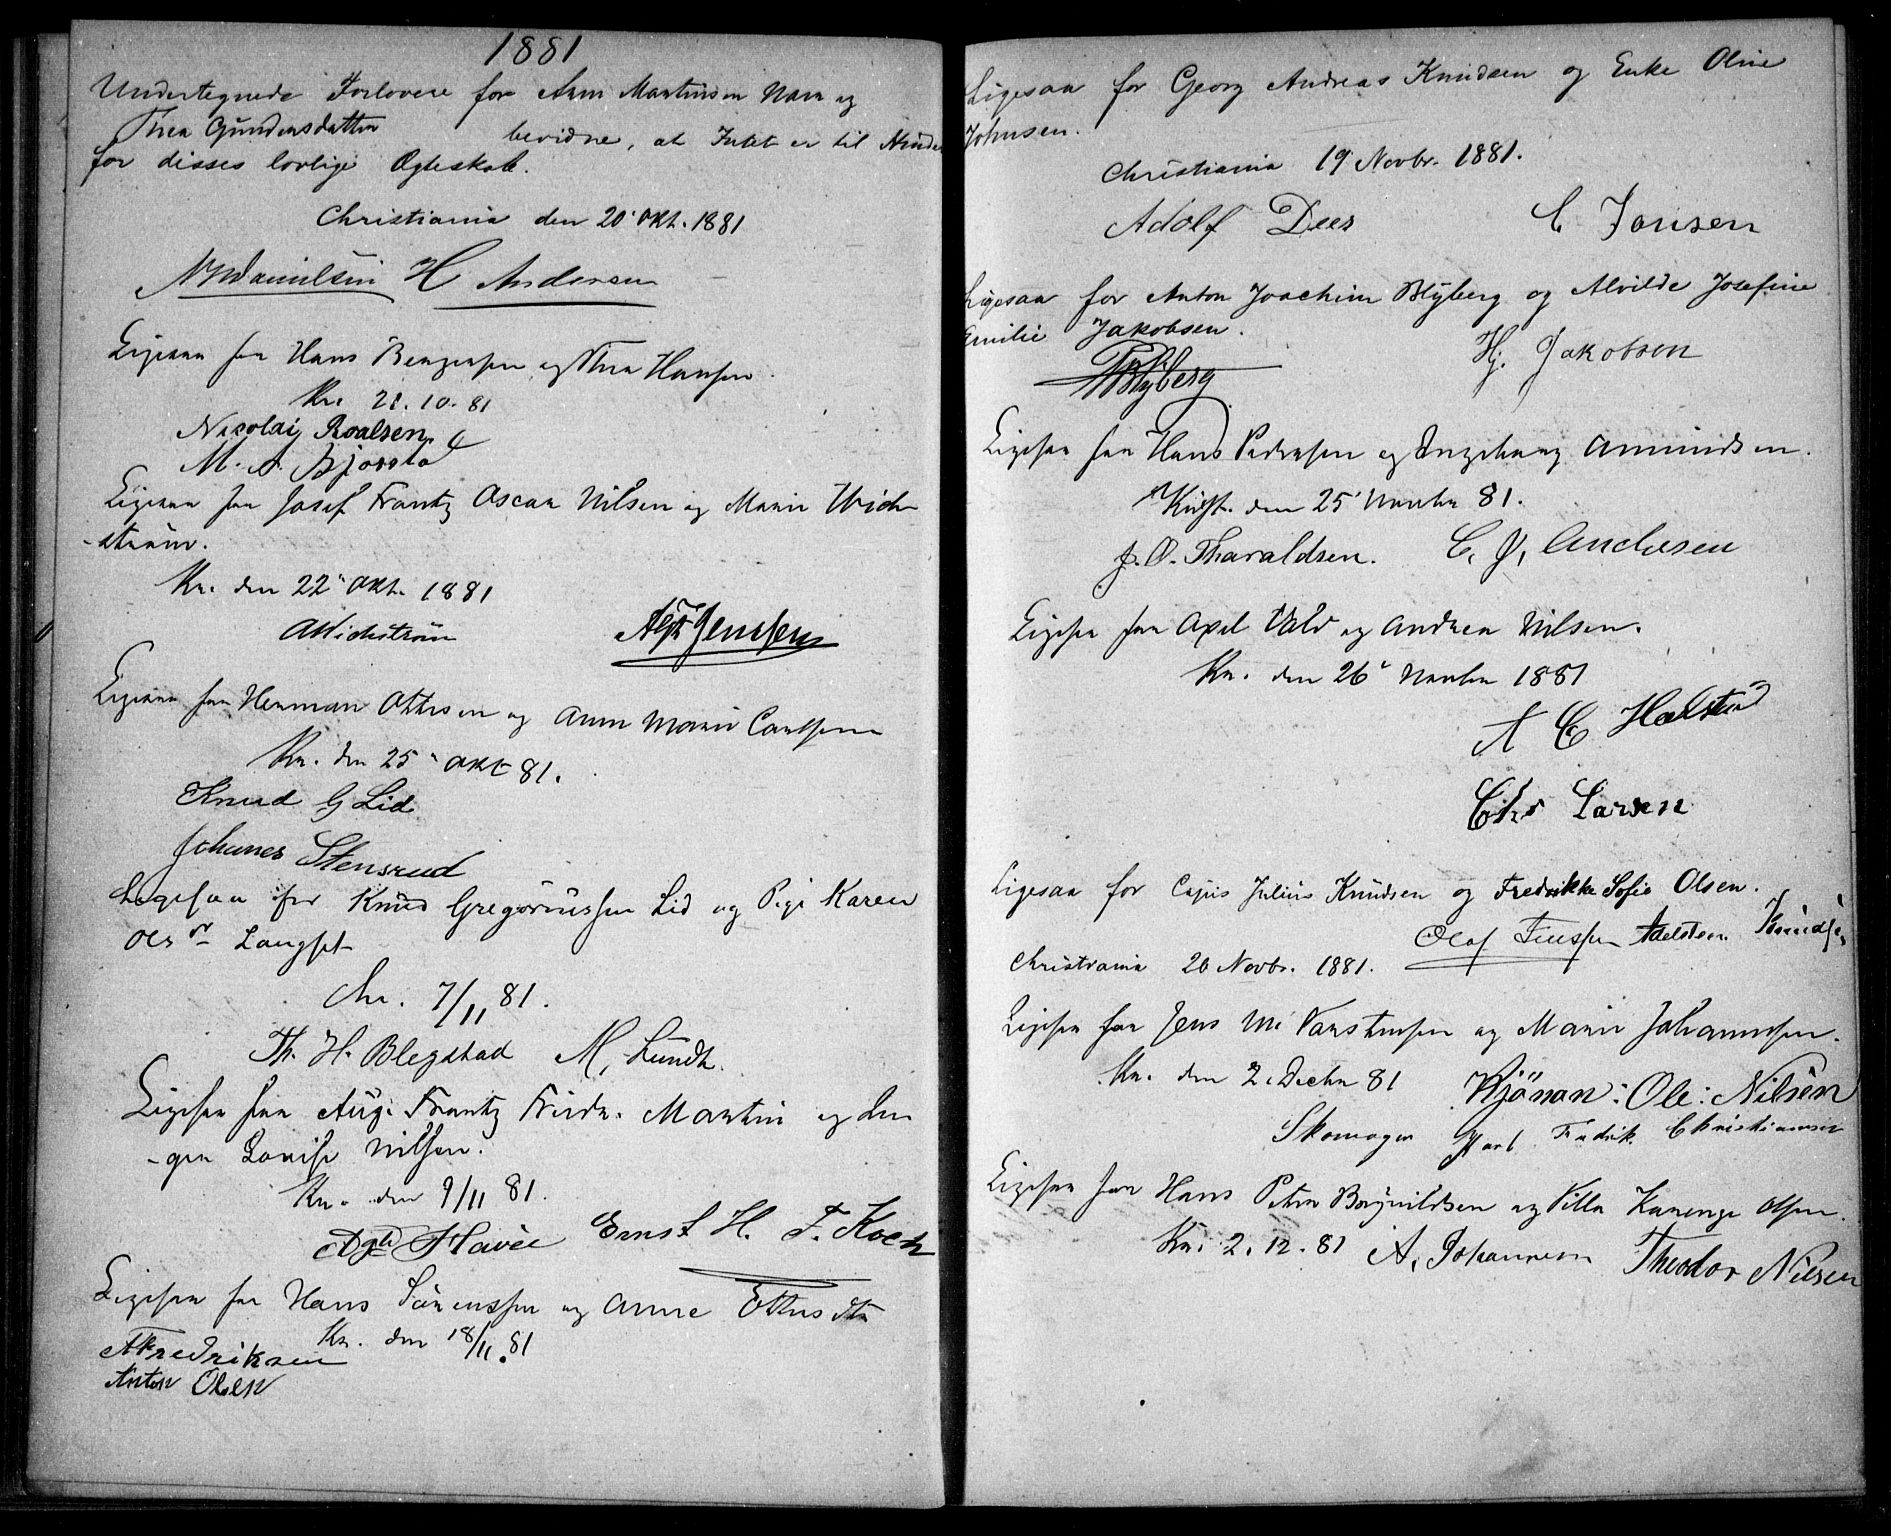 1881
Undertegnede Forlovere for Arne Martinsen Narn og
Thea Gundersdatter bevidne, at Intet er til Hinder
for disses lovlige Ægteskab.
Christiania den 20' Okt. 1881
Danielsen H Andersen
Ligesaa for Hans Bengensen og Thea Hansen.
Kr. 21.10.81
Nicolai Roalsen
M. A. Bjørstad
Ligesaa for Josef Frantz Oscar Nilsen og Marie Wid-
-strøm.
Kr. den 22' Okt. 1881
AWidstrøm Aug Jensen
Ligesaa for Herman Ottesen og Anne Marie Carlsen
Kr. den 25' Okt 81.
Knud G Lid
Johanes Stensrud
Ligesaa for Knud Gregoriussen Lid og Pige Karen
Olsdr Langset
Chr. 7/11 81.
Th. H. Blegstad M. Lundt.
Ligesaa for Aug. Frantz Fredr. Martin og Jen
-gen Lovise Nilsen.
Kr. den 9/11 81.
Agt Havée Ernst H. F. Koch
Ligesaa for Hans Sørenssen og Anne Ottersdtr
Kr. den 18/11.81
AFredriksen
Anton Olsen
Ligesaa for Georg Andreas Knudsen og Enke Oline
Johnsen.
Christiania 19 Novbr. 1881.
Adolf Dees C Jonsen
Ligesaa for Anton Joachim Blyberg og Alvilde Josefine
Emilie Jakobsen.
Blyberg Hj. Jakobsen
Ligesaa for Hans Pedersen og Ingeborg Amundsen.
Krist. den 25' Novbr 81.
J. O. Tharaldsen. C. J. Andersen
Ligesaa for Axel Vald og Andrea Nilsen.
Kr. den 26' Novbr 1881
A C Halstad
Chr Larsen
Ligesaa for Julius Knudsen og Fredrikke Sofie Olsen.
Olof Jenssen Adelsteen Knudsen
Christiania 26 Novbr. 1881.
Ligesaa for Jens M. Karstensen og Marie Johannesen.
Kr. den 2. Decbr 81 Kjönan: Ole: Nilsen
Skomager Karl Fredrik Christiansen
Ligesaa for Hans Peter Bognildsen og Villa Karenge Olsen.
Kr. 2.12.81 A. Johannesen Theodor Nilsen